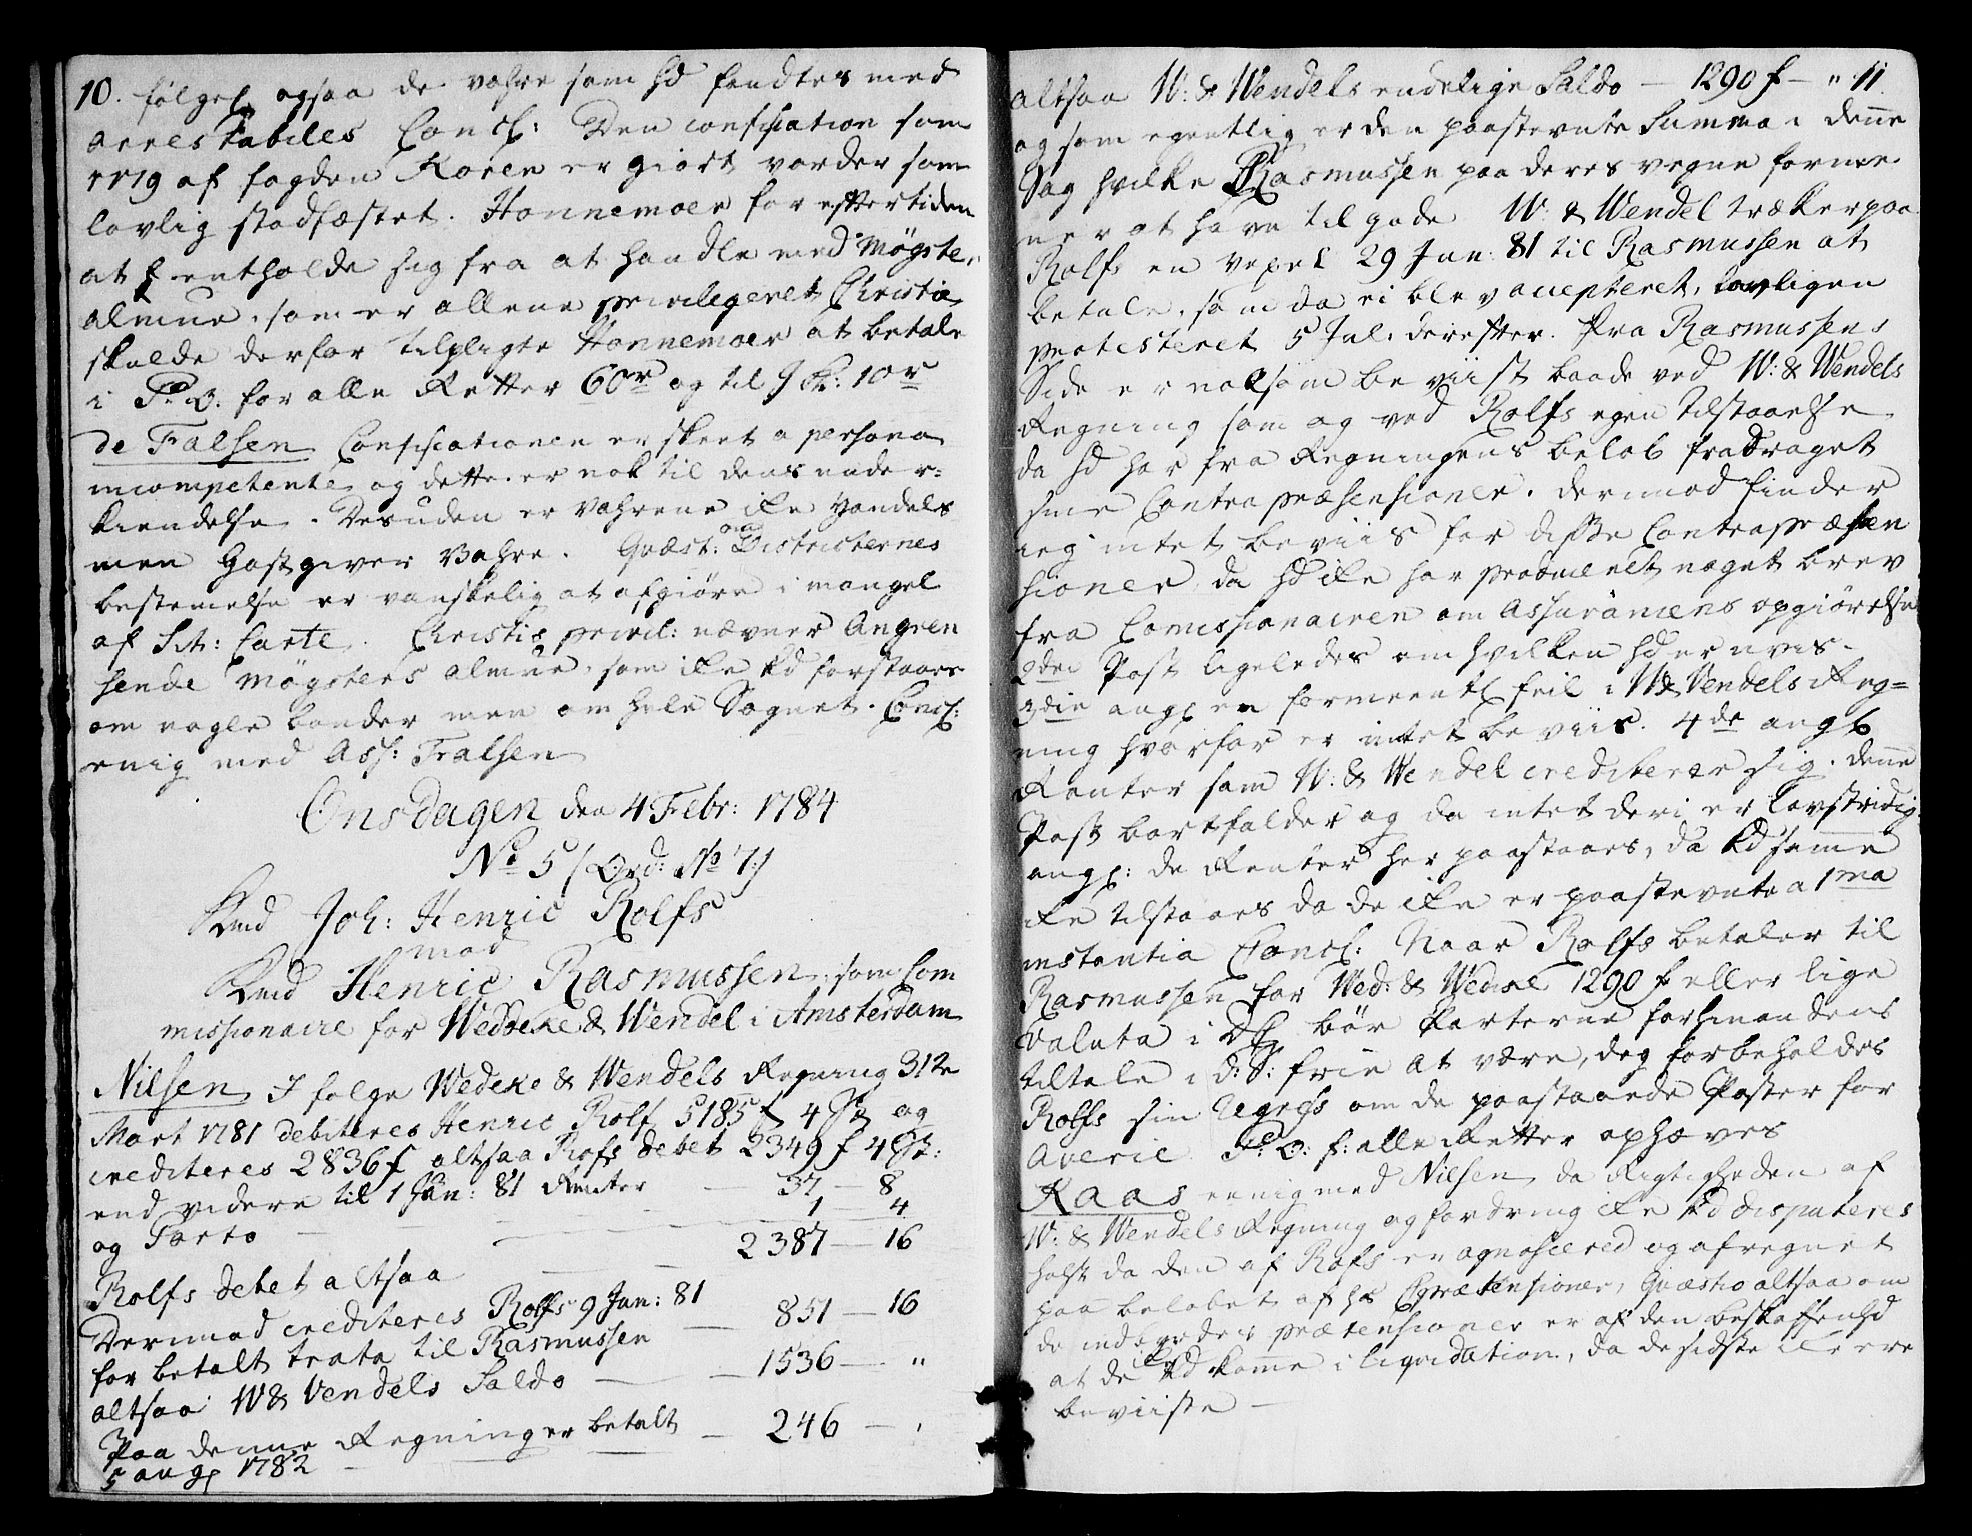 10. følgel: ogsaa de vahre som hd fandtes med
arrestabiles Concl: Den confiscation som
1779 af fogden Koren er giort vorder som
lovlig stadfæstet. Honnemoer for eftertiden
at entholde sig fra at handle med Møgste,,
almue, som er allene privilegeret Christie
skulde derfor tilpligte Honnemoer at betale
i P: O: for alle Retter 60r og til J K: 10r
de Falsen Confiscationen er skeet a persona
incompetente og dette er nok til dens under=
kiendelse. Desuden er vahrene ike Handels
men Gastgiver Vahre. Quæst: om Districternes
bestemelse er vanskelig at afgiøre i mangel
af Sit: Carte. Christis privil: nævner Angren
sende Møgsters almue, som ike kd forstaaes
om nogle bønder men om hele Sognet. Concl:
enig med Ass: Fralsen
Onsdagen den 4 Febr: 1784
No 5 /Ord: No 7/
Kmd Joh: Henric Rolfs
mod
Kmd Henric Rasmussen, som Com
missionaire for Wedeke & Wendel i Amsterdam
Nilsen I følge Wedeke & Wendels Regning 31te
Mart 1781 debiteres Henric Rolf 5185 f 4 St og
crediteres 2836 f altsaa Rofs debet 2349 f 4 St:
end videre til 1 Jan: 81 Renter — 37 — 8
og Porto — 1 — 4
2387 — 16
Rolfs debet altsaa
Dermod crediteres Rolfs 9 Jan: 81
for betalt trata til Rasmussen — 851 — 16
altsaa W & Vendels Saldo — 1536 — "
Paa denne Regning er betalt — 246 — "
5 aug 1782
altsaa W: & Wendels endelige Saldo — 1290 f — " 11.
og som egentlig er den paastevnte Summa i denne
Sag hvilke Rasmussen paa deres vegne forme
ner at have til gode W: & Wendel trækker paa
Rolfs en vexel 29 Jun: 81 til Rasmussen at
betale, som da ei blev accepteret, lovligen
protesteret 5 Jul: derefter. Fra Rasmussens
Side er noksom beviist baade ved W: & Wendels
Regning som og ved Rolfs egen tilstaaelse
da hd har fra Regningens beløb fradraget
sine Contra præsensioner. Dermod finder
ieg intet beviis for disse Contrapræsen
sioner da hd ike har produceret noget brev
fra Comissionairen om Assurancens opgiørelse
2den Post ligeledes om hvilken hd er uvis.
3die angl en formeentl feil i W & Vendels Reg=
ning hvorfor er intet beviis. 4de angl
Renter som W: & Wendel crediterer sig. denne
Post bortfalder og da intet deri er lovstridig
angl: de Renter her paastaaes, da kd samme
ike tilstaaes da de ike er paastevnte a 1ma
instantia Concl: Naar Rolfs betaler til
Rasmussen for Wed: & Wedike 1290 f eller lige
valuta i D bør Parterne for hinandens
tiltale i d: S: frie at være, dog forbeholdes
Rolfs sin Regress om de paastaaede Poster for
Averie P: O: f: alle Retter ophæves
Kaas eenig med Nilsen da Rigtigheden af
W: & Wendels Regning og fordring ike kd disputeres
helst da den af Rofs er agnosceret og afregnet
paa beløbet af hs Prætensioner, Quæstio altsaa om
de indbyrdes prætensioner er af den beskaffenhd
at de ike kd komme i liqvidation, da de sidste ike ere
beviiste —